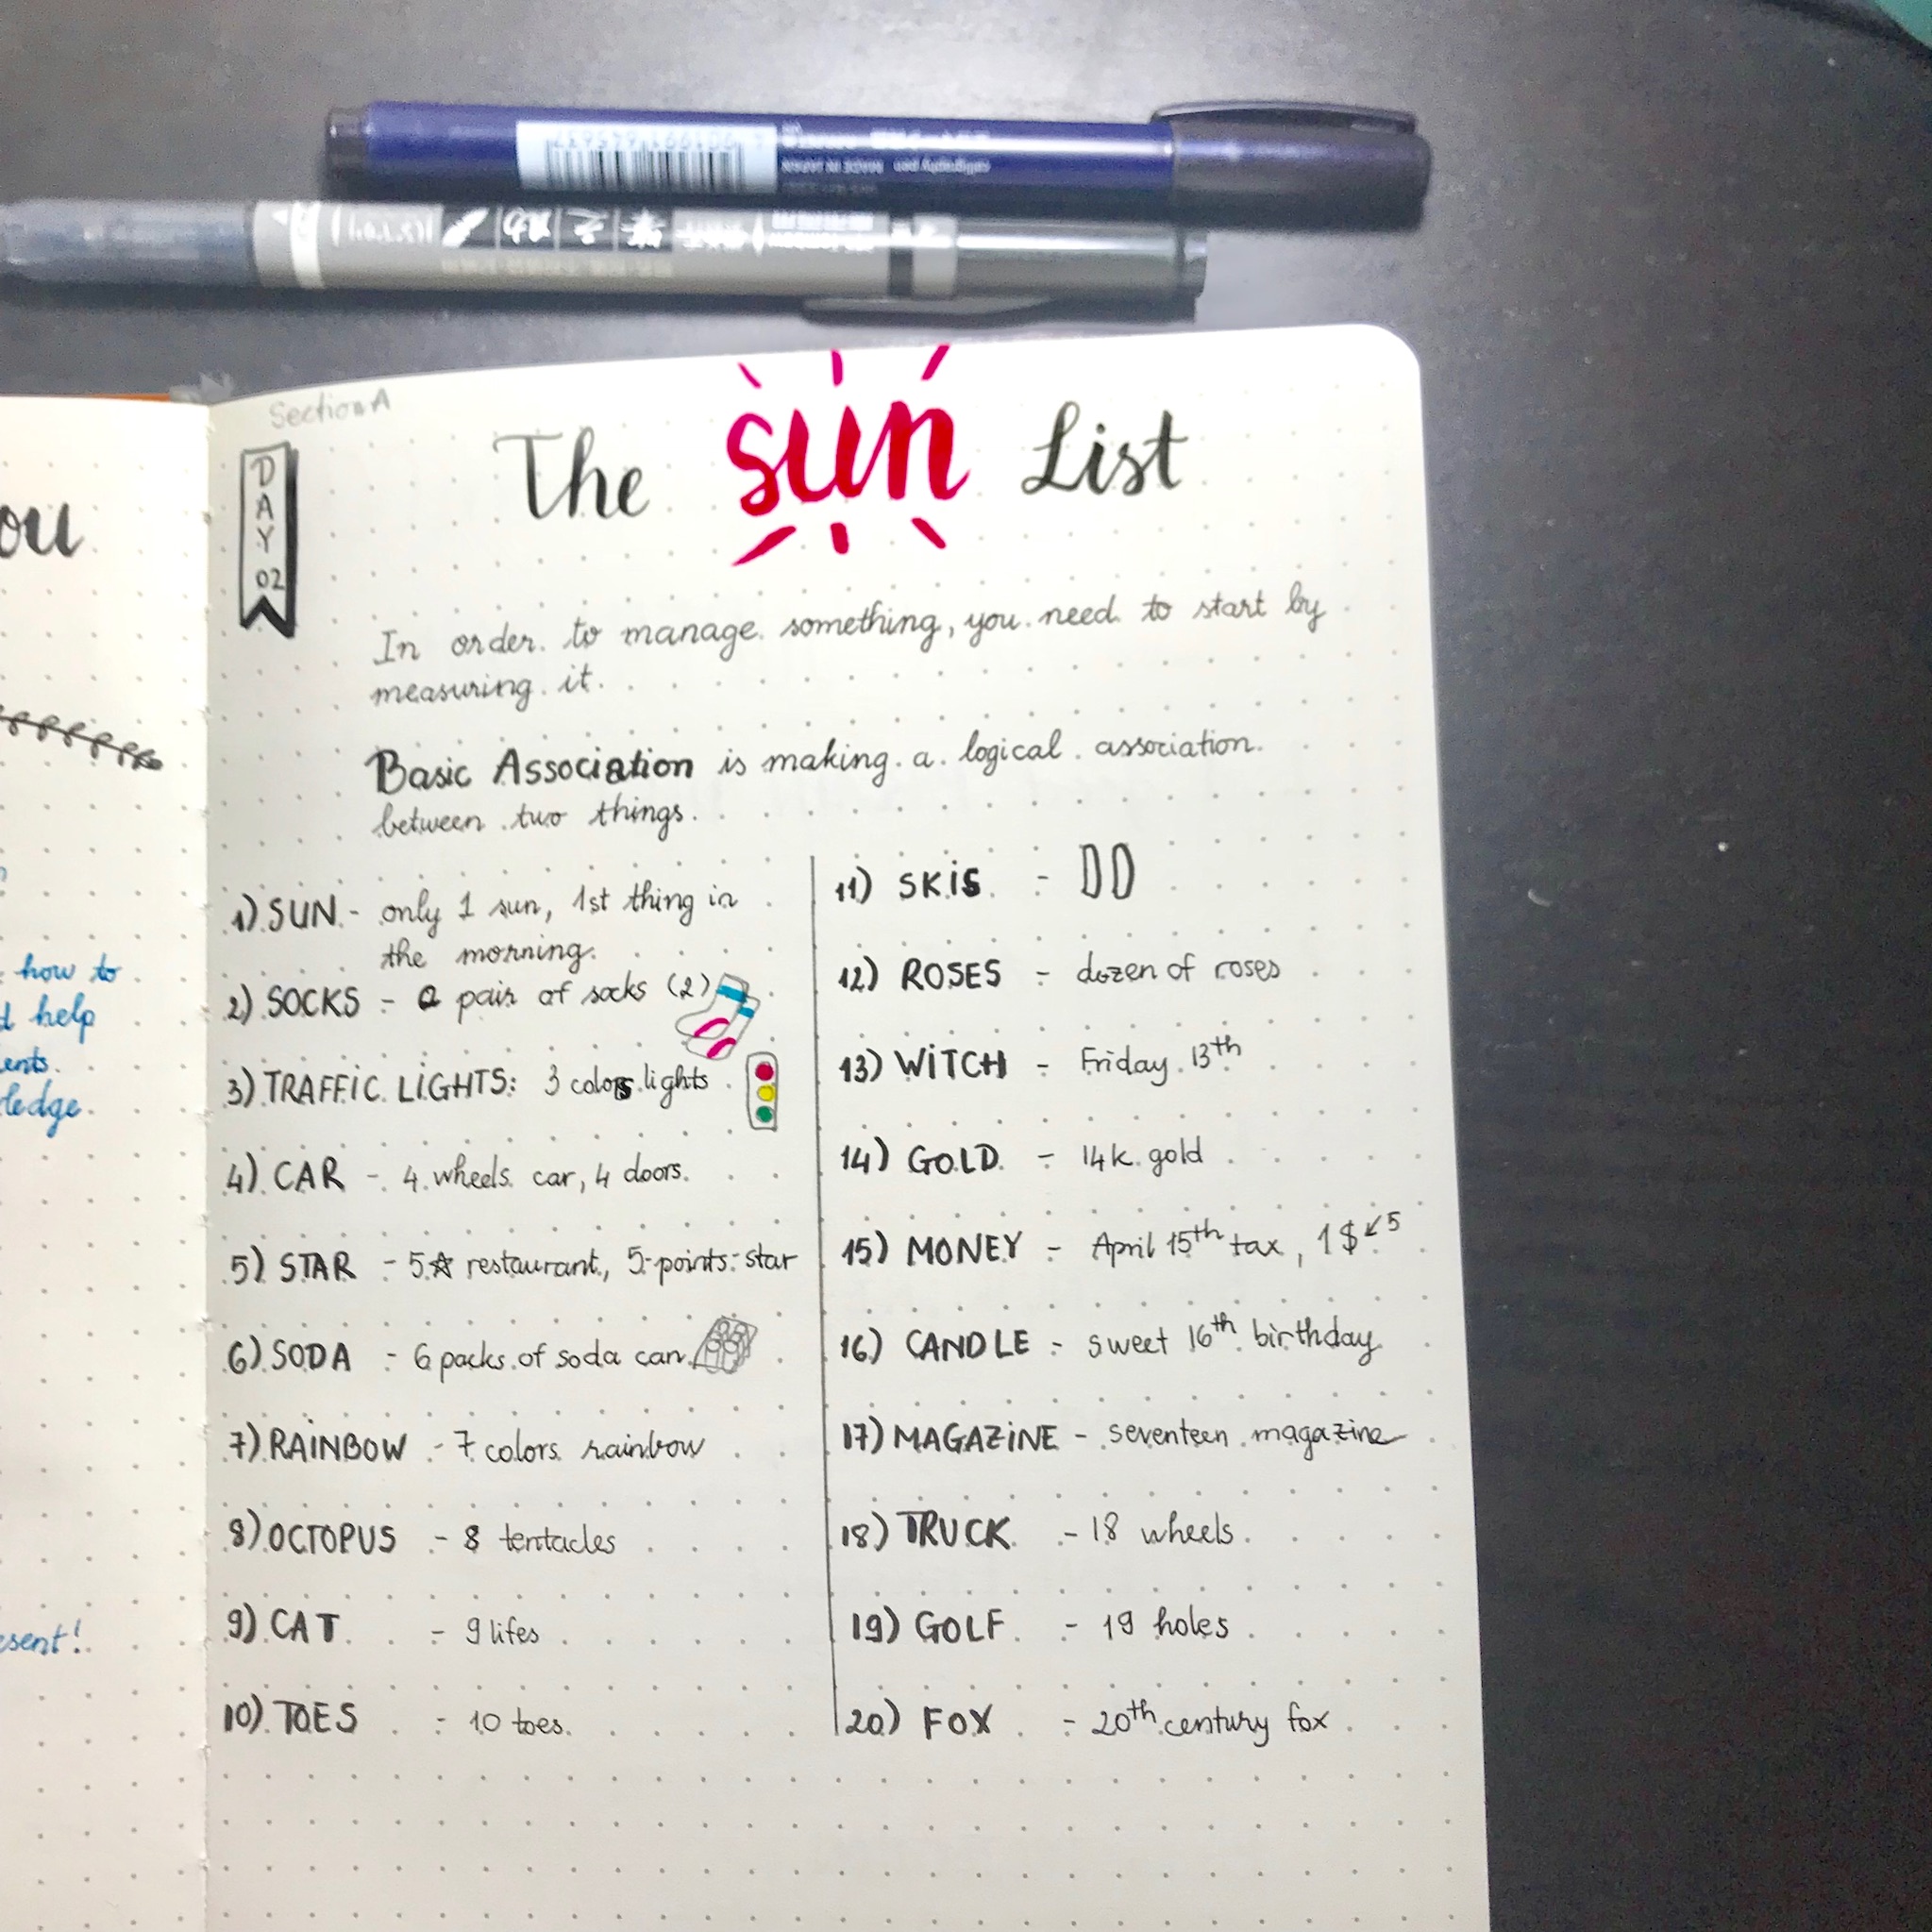 calligraphy pen MADE IN JAPAN
ou
how to
help
ents.
ledge.
esent!
Section A
DAY 02
The sun List
In order to manage something, you need to start by
measuring it.
Basic Association is making a logical association
between two things.
1) SUN - only 1 sun, 1st thing in
the morning.
2) SOCKS - a pair of socks (2)
3) TRAFFIC LIGHTS: 3 colors lights
4) CAR - 4 wheels car, 4 doors.
5) STAR - 5☆ restaurant, 5-points-star
6) SODA - 6 packs of soda can
7) RAINBOW - 7 colors rainbow
8) OCTOPUS - 8 tentacles
9) CAT - 9 lifes
10) TOES - 10 toes.
11) SKIS -
12) ROSES - dozen of roses
13) WITCH - Friday 13th
14) GOLD - 14k gold
15) MONEY - April 15th tax, 1$↙5
16) CANDLE - sweet 16th birthday
17) MAGAZINE - seventeen magazine
18) TRUCK - 18 wheels
19) GOLF - 19 holes
20) FOX - 20th century fox